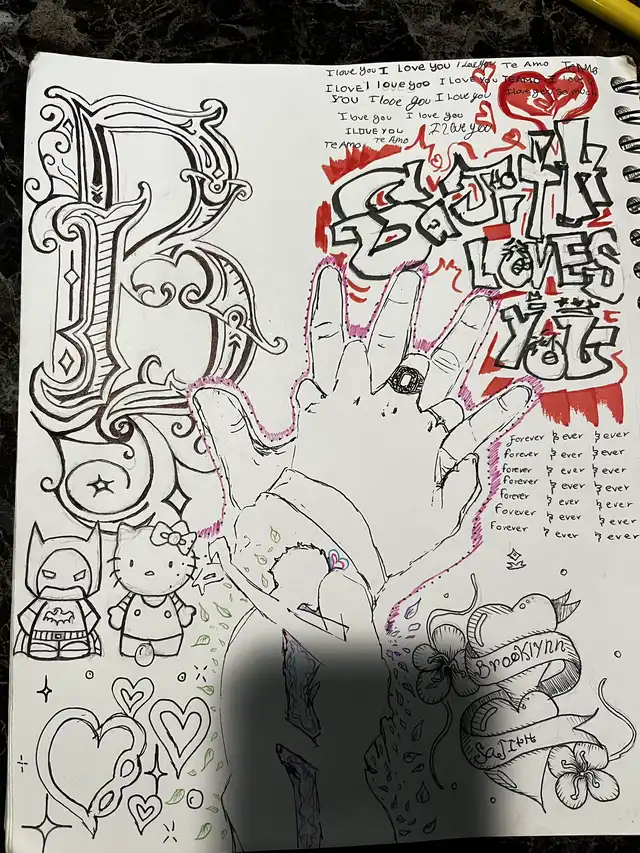 I love you I LOVE YOU I Love You Te Amo TEAMO
I LOVE I love you I LOVE YOU TEAMO I Love
YOU I love you I Love you I love you so much
I love you I love you
ILOVE YOU I love you
TE AMO Te Amo
B
LOVES
YOU
forever & ever & ever
forever & ever & ever
forever & ever & ever
forever & ever & ever
forever & ever & ever
forever & ever & ever
forever & ever & ever
Brooklynn
SaJith